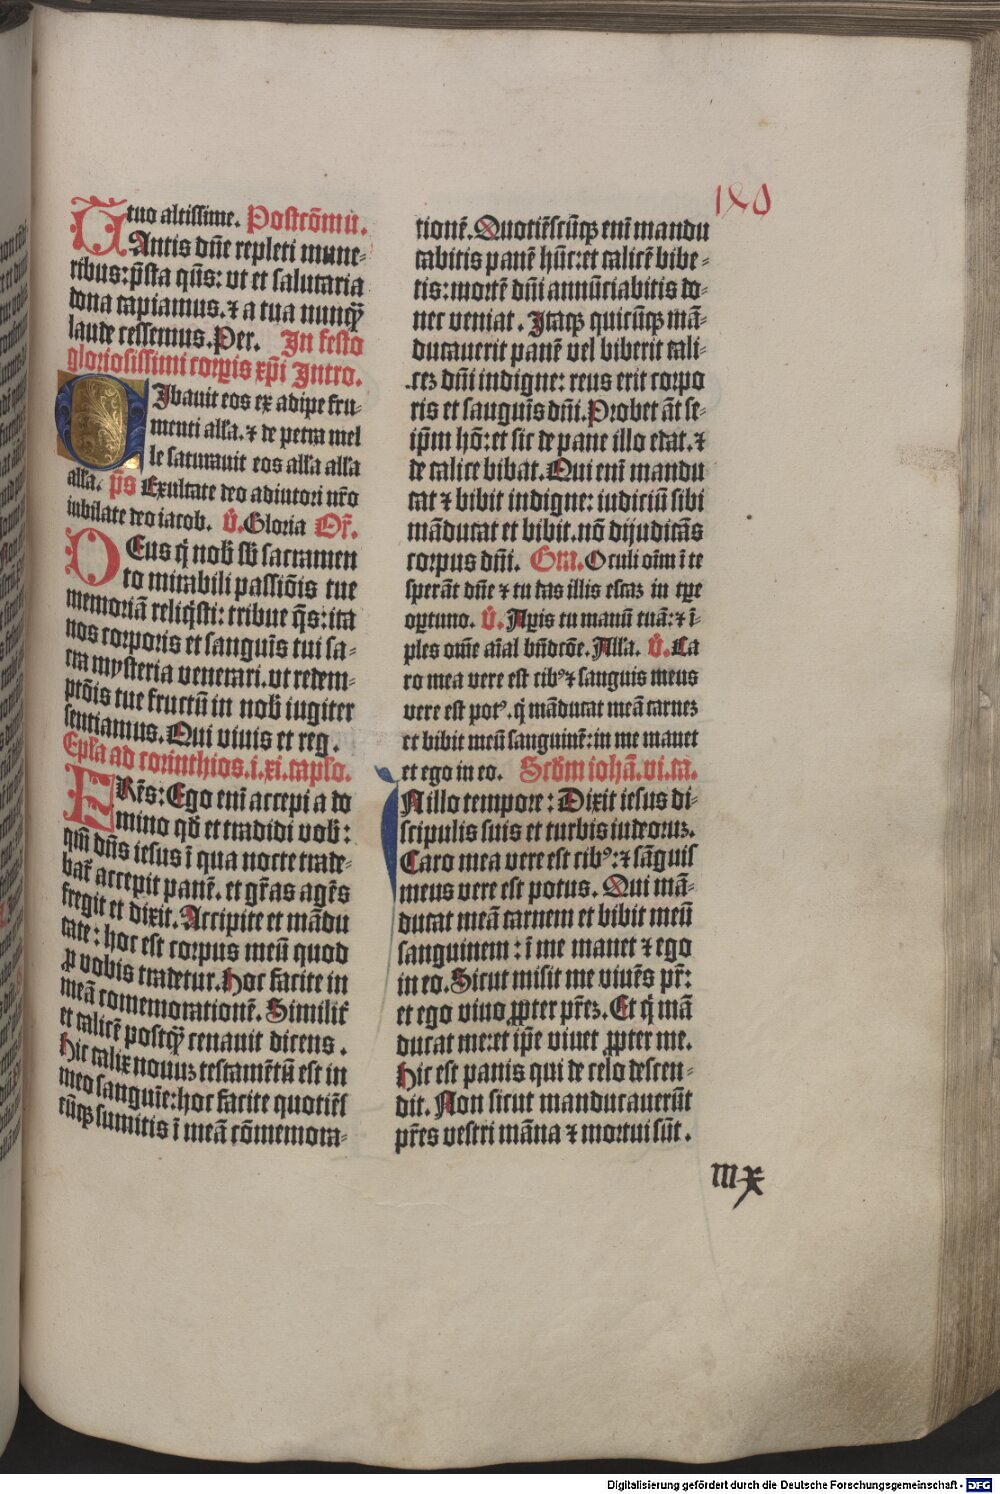 lxv
tuo altissime. Postcōmū.
Antis dñe repleti mune-
ribus: p̄sta qūs: vt et salutaria
dona capiamus. ⁊ a tua nunq̄
laude cessemus. Per. In festo
gloriosissimi corpis xp̄i Intro.
CIbauit eos ex adipe fru-
menti alľa. ⁊ de petra mel
le saturauit eos alľa alľa
alľa. p̄s Exultate deo adiutori nr̄o
iubilate deo iacob. V̊. Gloria Or̄.
DEus q̇ nob̄ sb̄ sacramen
to mirabili passiōis tue
memoriā reliq̇sti: tribue q̄s: ita
nos corporis et sanguīs tui sa-
cra mysteria venerari. vt redem-
ptōis tue fructū in nob̄ iugiter
sentiamus. Qui viuis et reg.
Epľa ad corinthios. i. xi. capľo.
FRēs: Ego enī accepi a do
mino qđ et tradidi vob̄:
qm̄ dñs iesus ī qua nocte trade-
bat̄ accepit panē. et gr̄as agēs
fregit et dixit. Accipite et mādu
cate: hoc est corpus meū quod
ꝓ vobis tradetur. Hoc facite in
meā comemorationē. Similit̄
et calicē postq̄ cenauit dicens.
Hic calix nouuꝫ testamētū est in
meo sanguīe: hoc facite quotiēs
cūqꝫ sumitis ī meā cōmemora-
tionē. Quotiēscūqꝫ enī mandu
cabitis panē hūc: et calicē bibe-
tis: mortē dñi annūciabitis do-
nec veniat. Itaqꝫ quicūqꝫ mā-
ducauerit panē vel biberit cali-
ceꝫ dñi indigne: reus erit corpo
ris et sanguīs dñi. Probet āt se-
ip̄m hō: et sic de pane illo edat. ⁊
de calice bibat. Qui enī mandu
cat ⁊ bibit indigne: iudiciū sibi
māducat et bibit. nō dijudicās
corpus dñi. Gra. Oculi oīm ī te
sperāt dñe ⁊ tu das illis escaꝫ in tpe
oportuno. V̊. Apis tu manū tuā: ⁊ ī-
ples om̄e aīal bñdcōe. Alľa. V̊. Ca
ro mea vere est cibꝰ ⁊ sanguis meus
vere est potꝰ. q̇ māducat meā carneꝫ
et bibit meū sanguinē: in me manet
et ego in eo. Scđm iohā. vi. ca.
IN illo tempore: Dixit iesus di-
scipulis suis et turbis iudeoruꝫ.
Caro mea vere est cibꝰ: ⁊ sāguis
meus vere est potus. Qui mā-
ducat meā carnem et bibit meū
sanguinem: ī me manet ⁊ ego
in eo. Sicut misit me viuēs pr̄:
et ego viuo ꝓpter pr̄eꝫ. Et q̇ mā
ducat me: et ip̄e viuet ꝓpter me.
Hic est panis qui de celo descen-
dit. Non sicut manducauerūt
pr̄es vestri māna ⁊ mortui sūt.
Digitalisierung gefördert durch die Deutsche Forschungsgemeinschaft - DFG